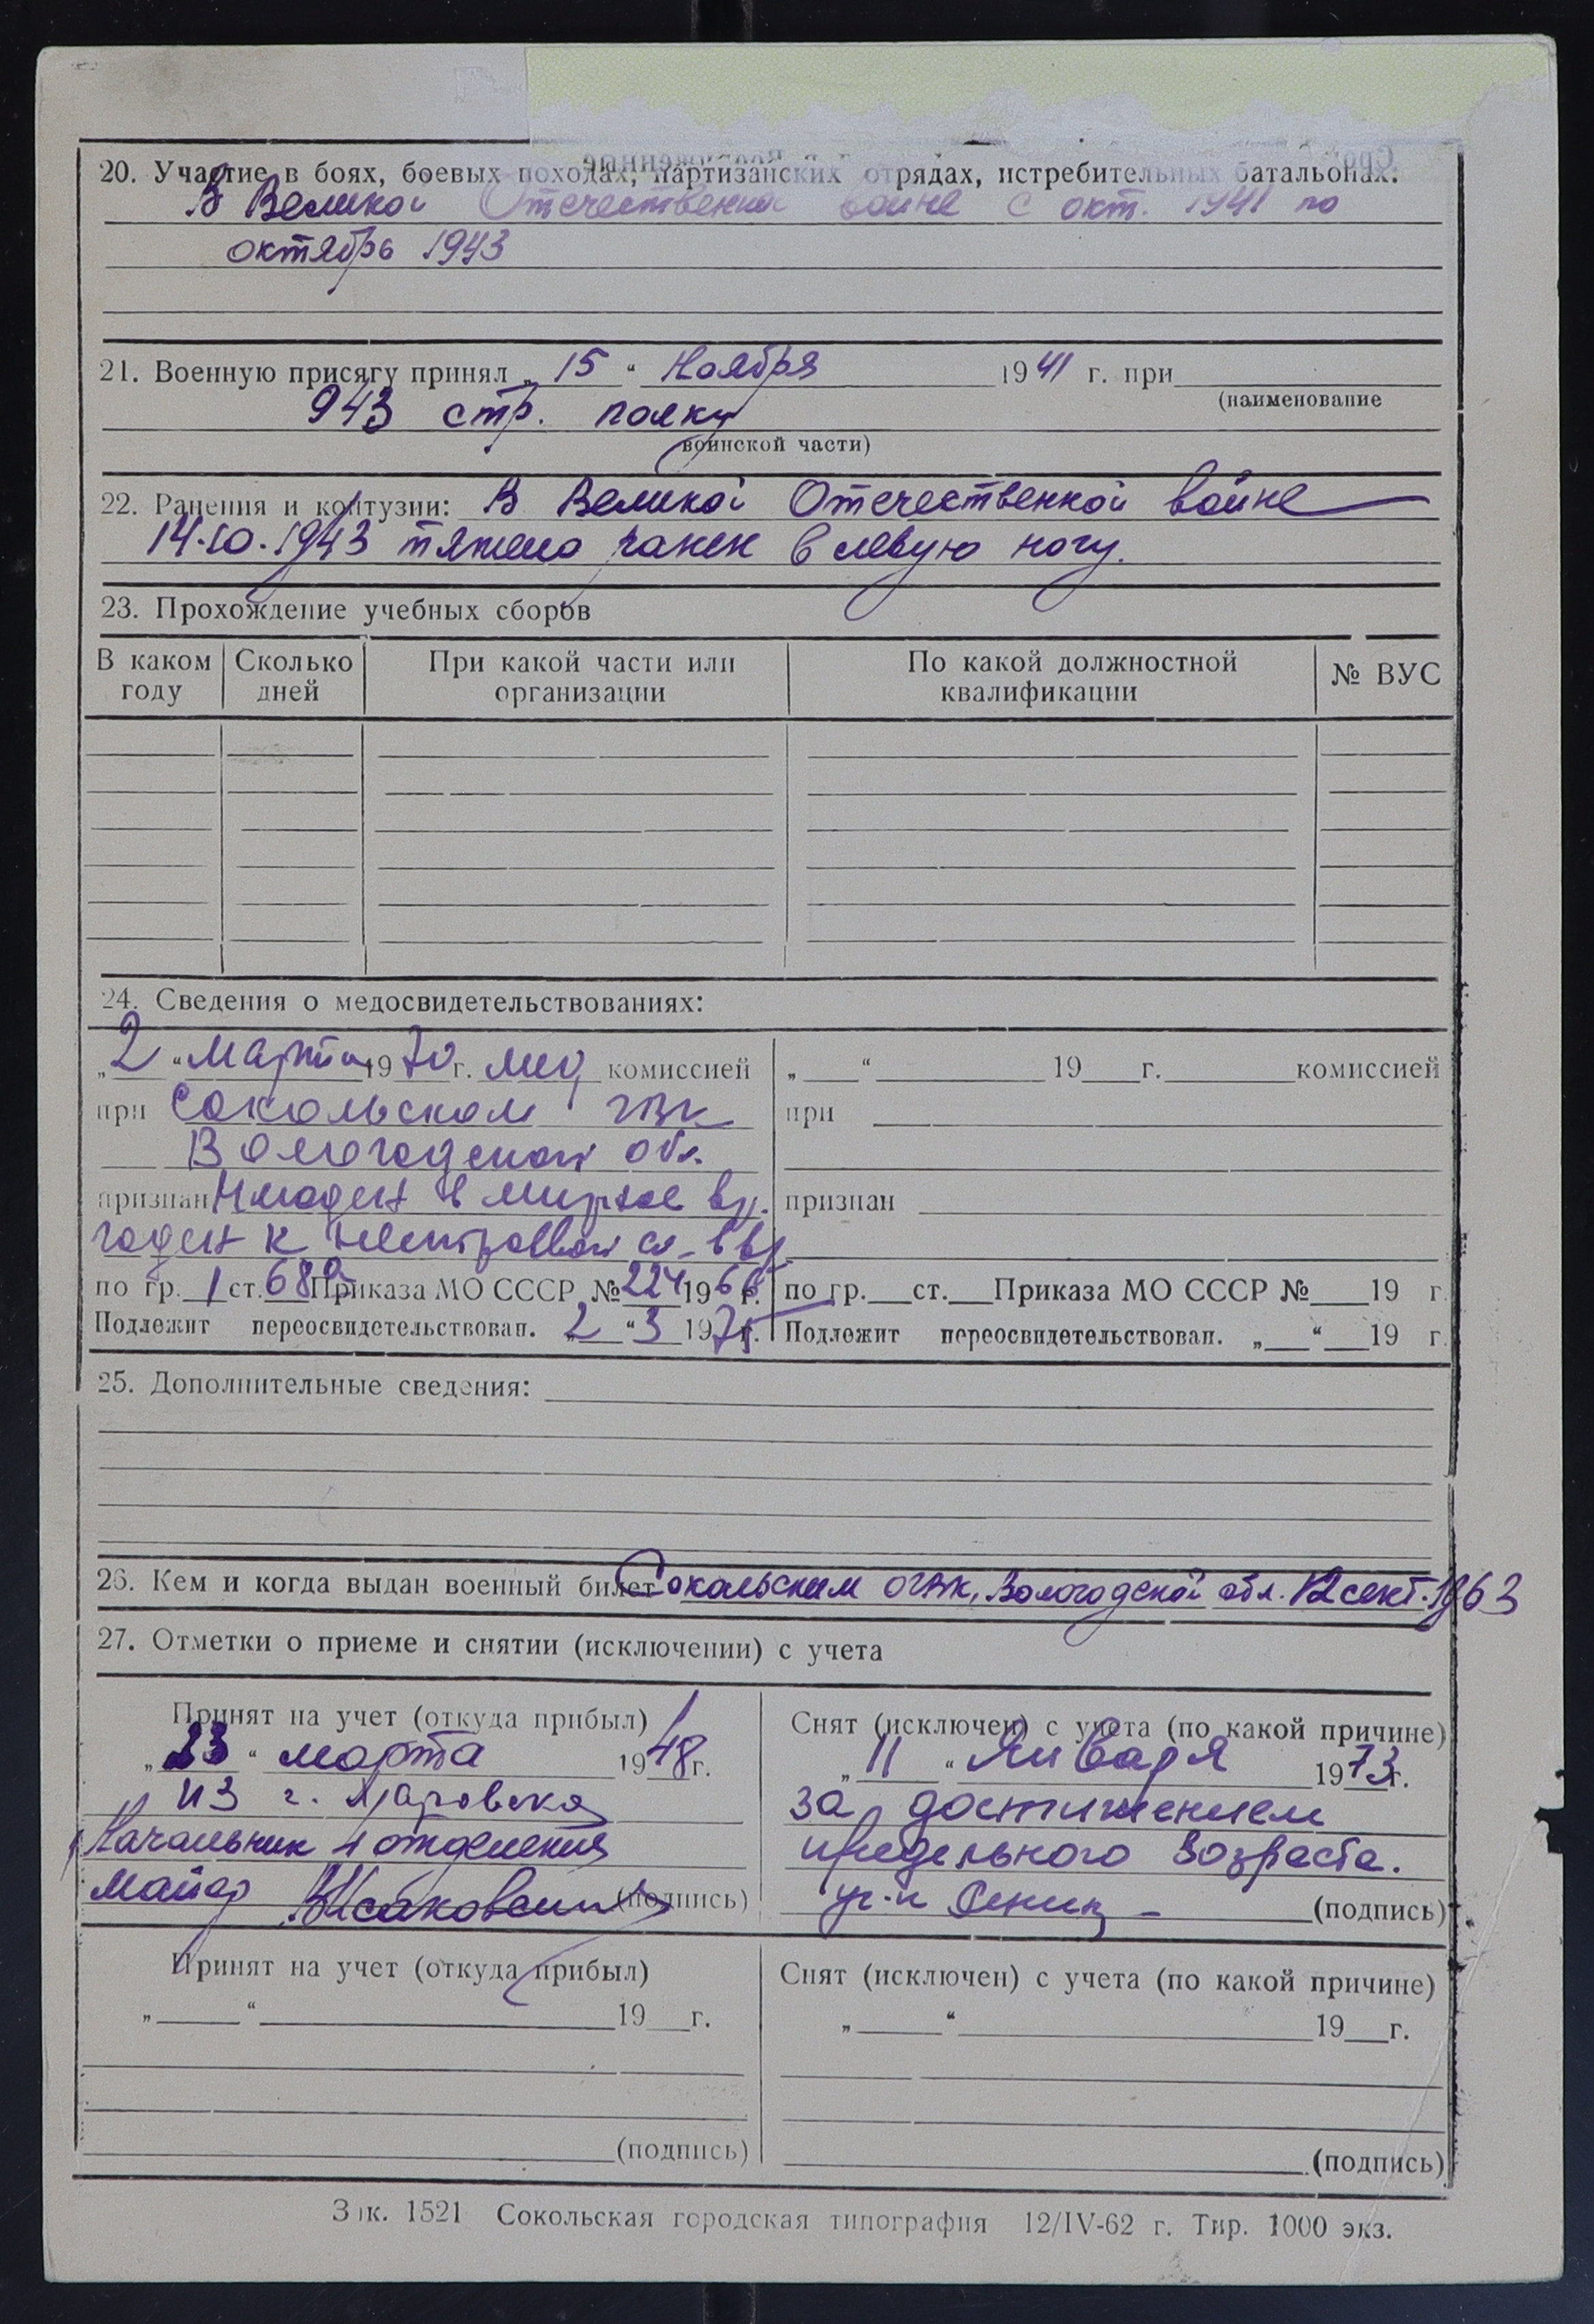 20. Участие в боях, боевых походах, партизанских отрядах, истребительных батальонах:
В Великой Отечественной войне с окт. 1941 по
октябрь 1943
21. Военную присягу принял „15“ Ноября 1941 г. при
(наименование
943 стр. полку
воинской части)
22. Ранения и контузии: В Великой Отечественной войне
14.10.1943 тяжело ранен в левую ногу.
23. Прохождение учебных сборов
В каком году
Сколько дней
При какой части или организации
По какой должностной квалификации
№ ВУС
24. Сведения о медосвидетельствованиях:
„2“ Марта 1970 г. мед комиссией
при Сокольском ГВК
Вологодской обл.
признан Негоден в мирное вр.
годен к нестроевой сл. в вр
по гр. 1 ст. 68а Приказа МО СССР № 224 1966 г.
Подлежит переосвидетельствован. „2“ 3 1975 г.
„ “ 19 г. комиссией
при
признан
по гр. ст. Приказа МО СССР № 19 г
Подлежит переосвидетельствован. „ “ 19 г.
25. Дополнительные сведения:
26. Кем и когда выдан военный билет Сокольским ОГВК, Вологодской обл. 12 сент. 1963
27. Отметки о приеме и снятии (исключении) с учета
Принят на учет (откуда прибыл)
„23“ марта 1948 г.
из г. Харовска
Начальник 4 отделения
Майор (подпись)
Снят (исключен) с учета (по какой причине)
„11“ Января 1973 г.
за достижением
предельного возраста.
(подпись)
Принят на учет (откуда прибыл)
„ “ 19 г.
(подпись)
Снят (исключен) с учета (по какой причине)
„ “ 19 г.
(подпись)
Зак. 1521 Сокольская городская типография 12/IV-62 г. Тир. 1000 экз.